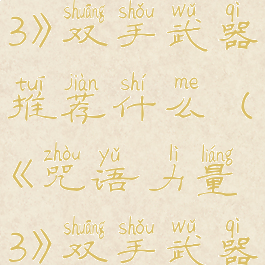 shuāng shǒu wǔ qì
3》双手武器
tuī jiàn shí me
推荐什么（
zhòu yǔ lì liáng
《咒语力量
shuāng shǒu wǔ qì
3》双手武器